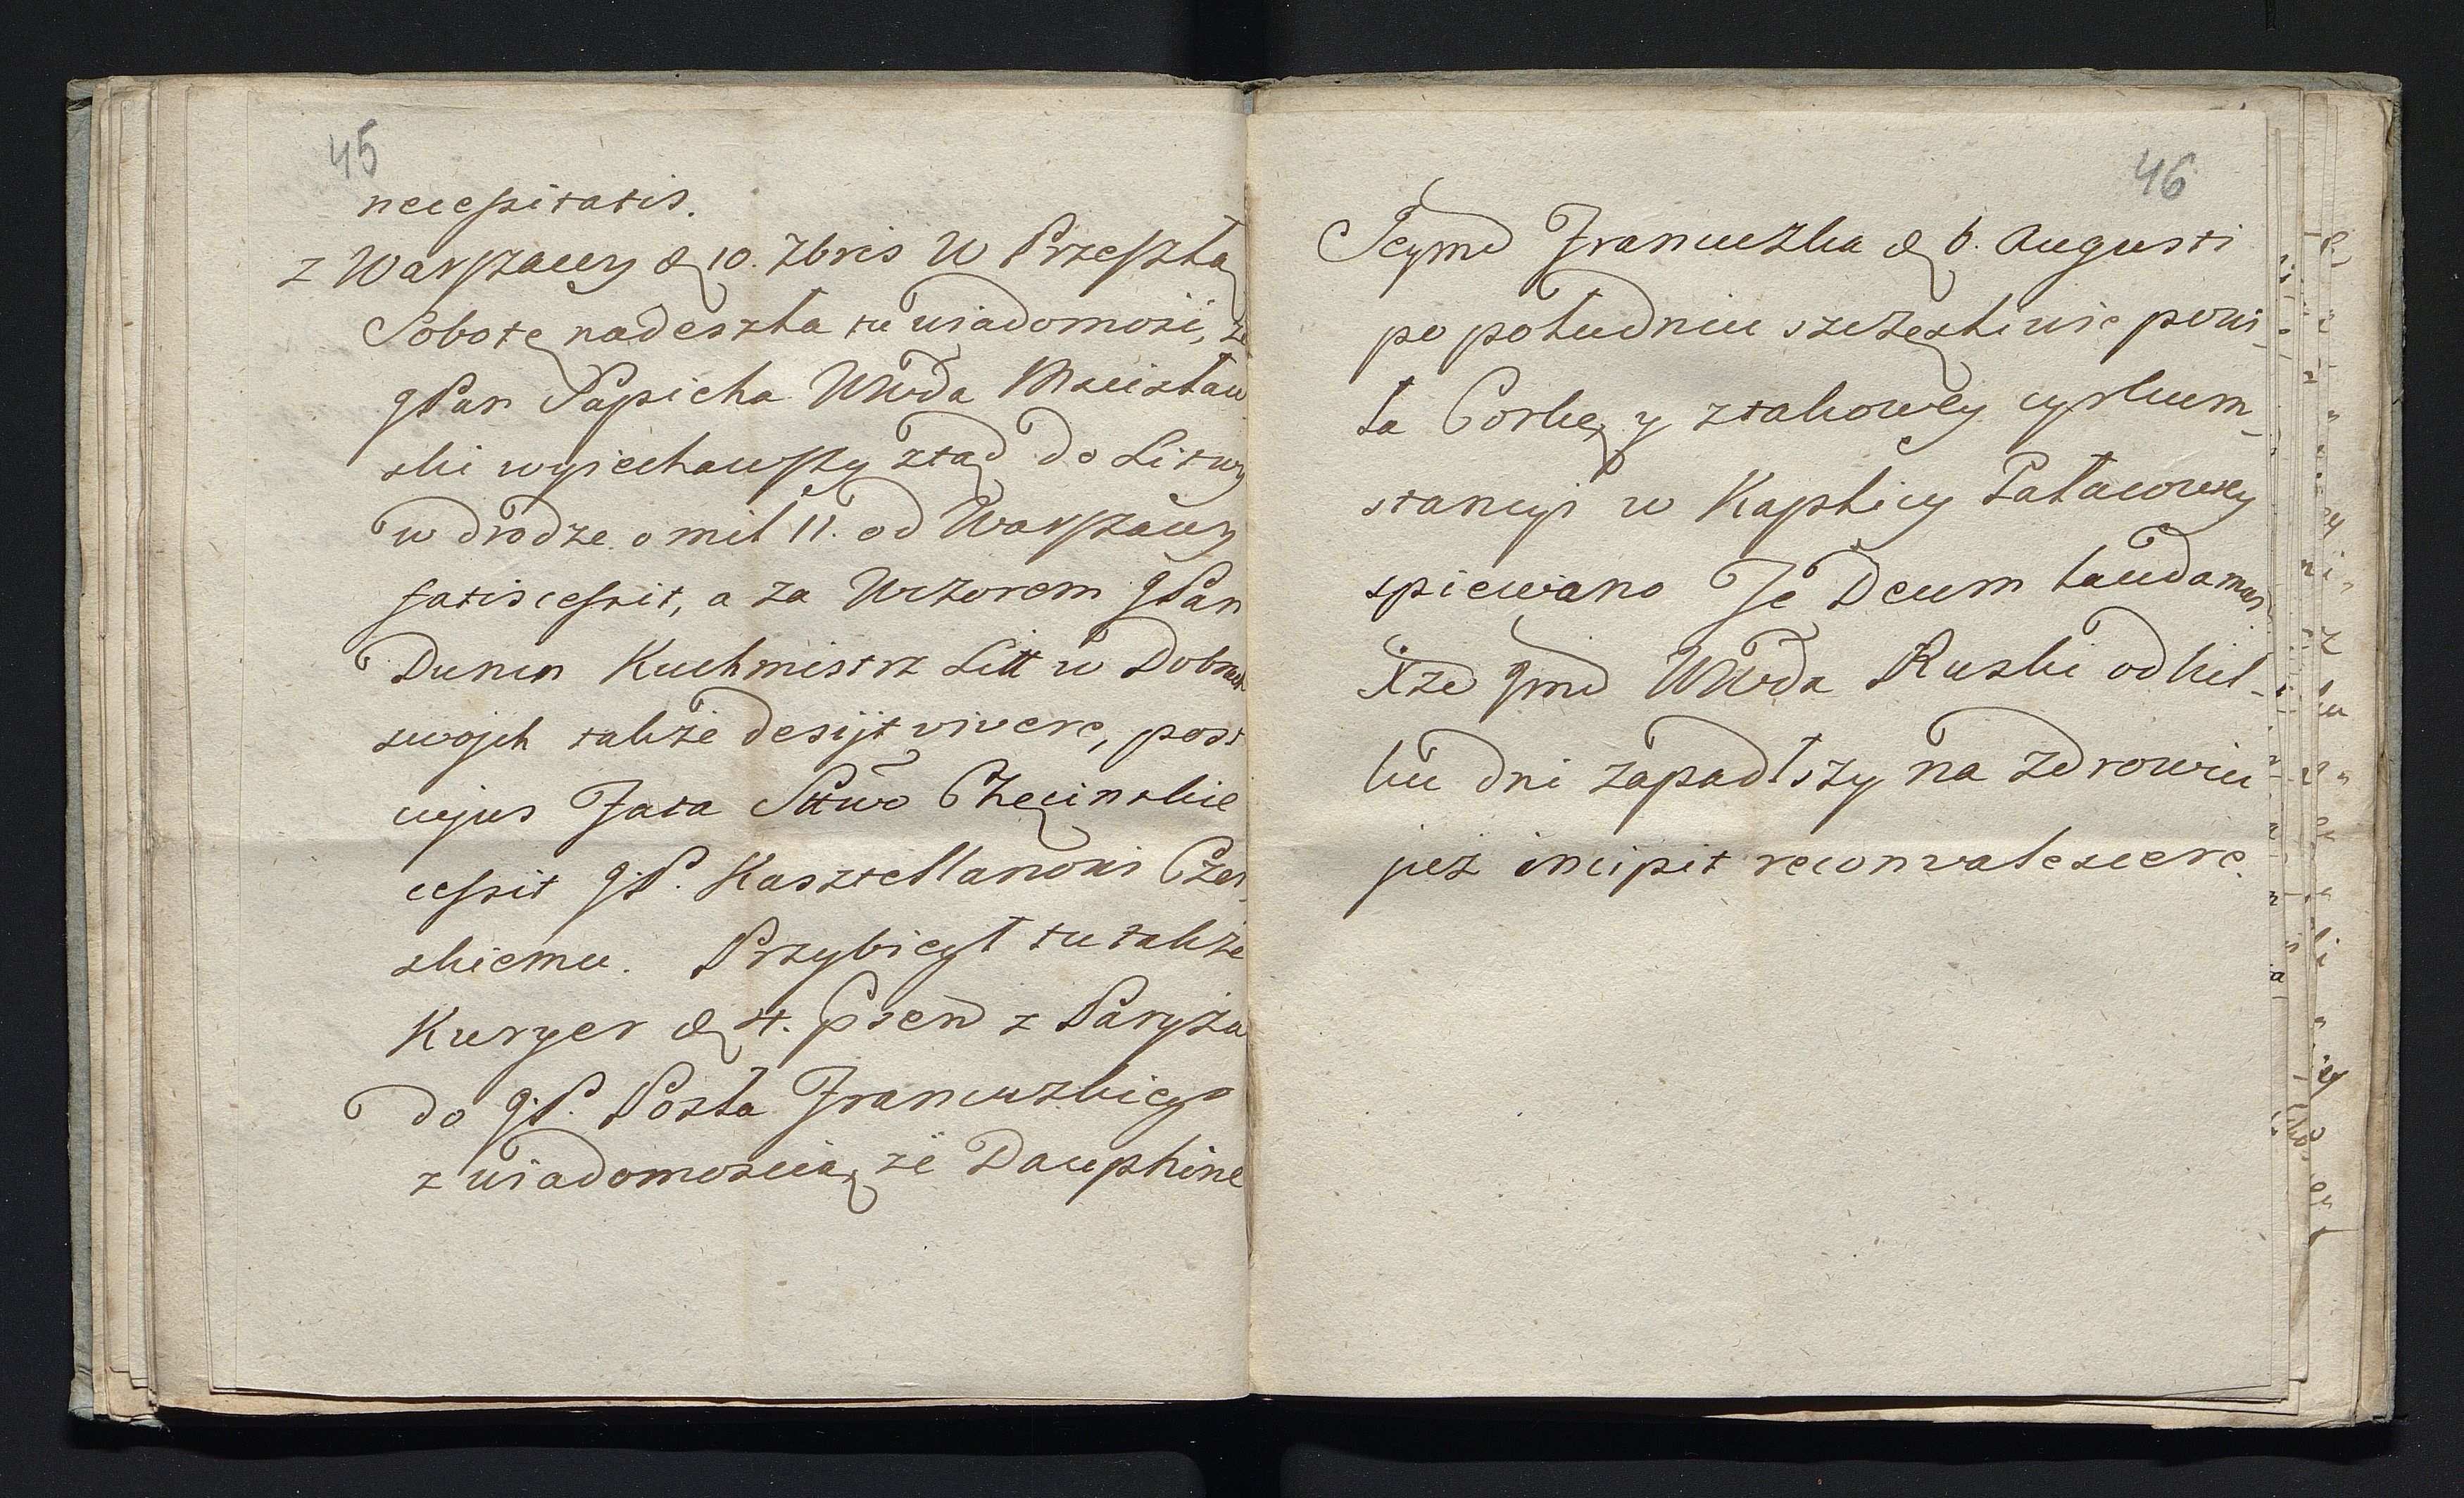 45
necessitatis.
z Warszawy d 10. 7bris W Przeszłą
Sobotę nadeszła tu wiadomość, że
JPan Sapieha WWda Mscisław
ski wyiechawszy ztąd do Litwy
w drodze o mil 11. od Warszawy
satiscessit, a za Wzorem JPan
Dunin Kuchmistrz Litt w Dobrach
swojch także desijt vivere, post
cujus Fata Sttwo Chęcinskie
cessit J.P. Kasztellanowi Czer-
skiemu. Przybiegł tu także
Kuryer d 4. psend z Paryża
do J.P. Posła Francuzkiego
z wiadomoscią, że Dauphine
46
Jeymć Francuzka d 6. Augusti
po południu szczęśliwie powi-
ła Corkę, y z takowey cyrkum-
stancyi w Kaplicy Pałacowey
spiewano Te Deum laudamus
Xże Jmć WWda Ruski od kil-
ku dni zapadłszy na zdrowiu
już incipit reconvalescere.